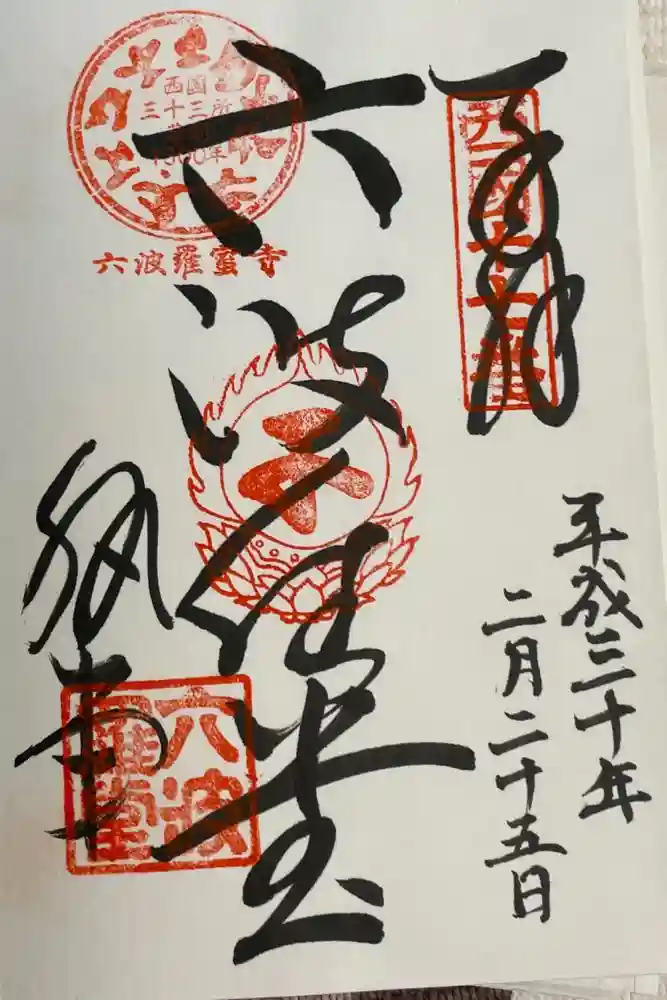 奉拝
西国十七番
平成三十年
二月二十五日
六波羅堂
西国
三十三所
草創
1300年
六波羅蜜寺
六波
羅堂